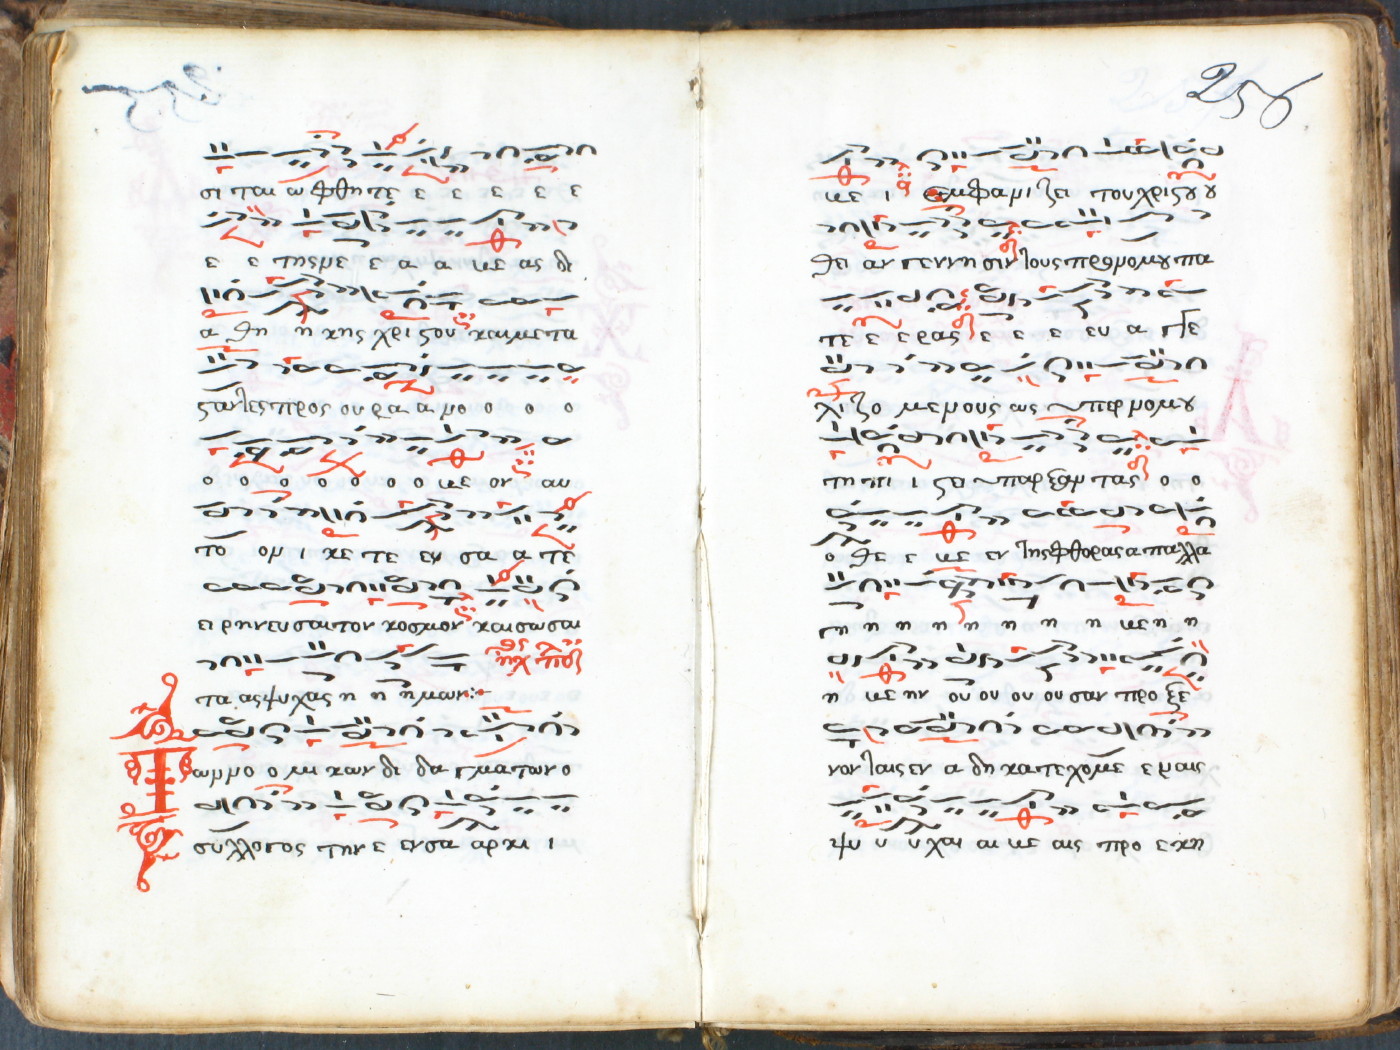 σι ται ω φθη τε ε ε ε ε ε
ε ε της με ε α α με ας δι
α θη η κης χρι ςου και με τα
ςαν τες προς ου ρα α νο ο ο ο ο
ο ο ο ο ο ο με ον αυ
το ον ι κε τε εν σα α τε
ει ρη νευ σαι τον κοσμον και σω σαι
τας ψυχας η η ημων:
Των νο ο μι κων δι δα γματων ο
συλλογος την ε ενσα αρκι ι
258
με ι εμφανι ζει του χριςου ου
θει αν γεννησιν τοις προ νομου πα
τε ε ε ρας ε ε ε ευ α γγε
λιζο μενους ως υπερ νομου
τη πι ι ςει υπαρξαντας ο ο
ο θε ε με εν της φθορας απαλλα
γη η η η η η η με η η
η με ην ου ου ου ουσαν προ ξε
νον ταις εν α δη κατεχομε ε ναις
ψυ υ υ χαι αι με αις προ ε κη